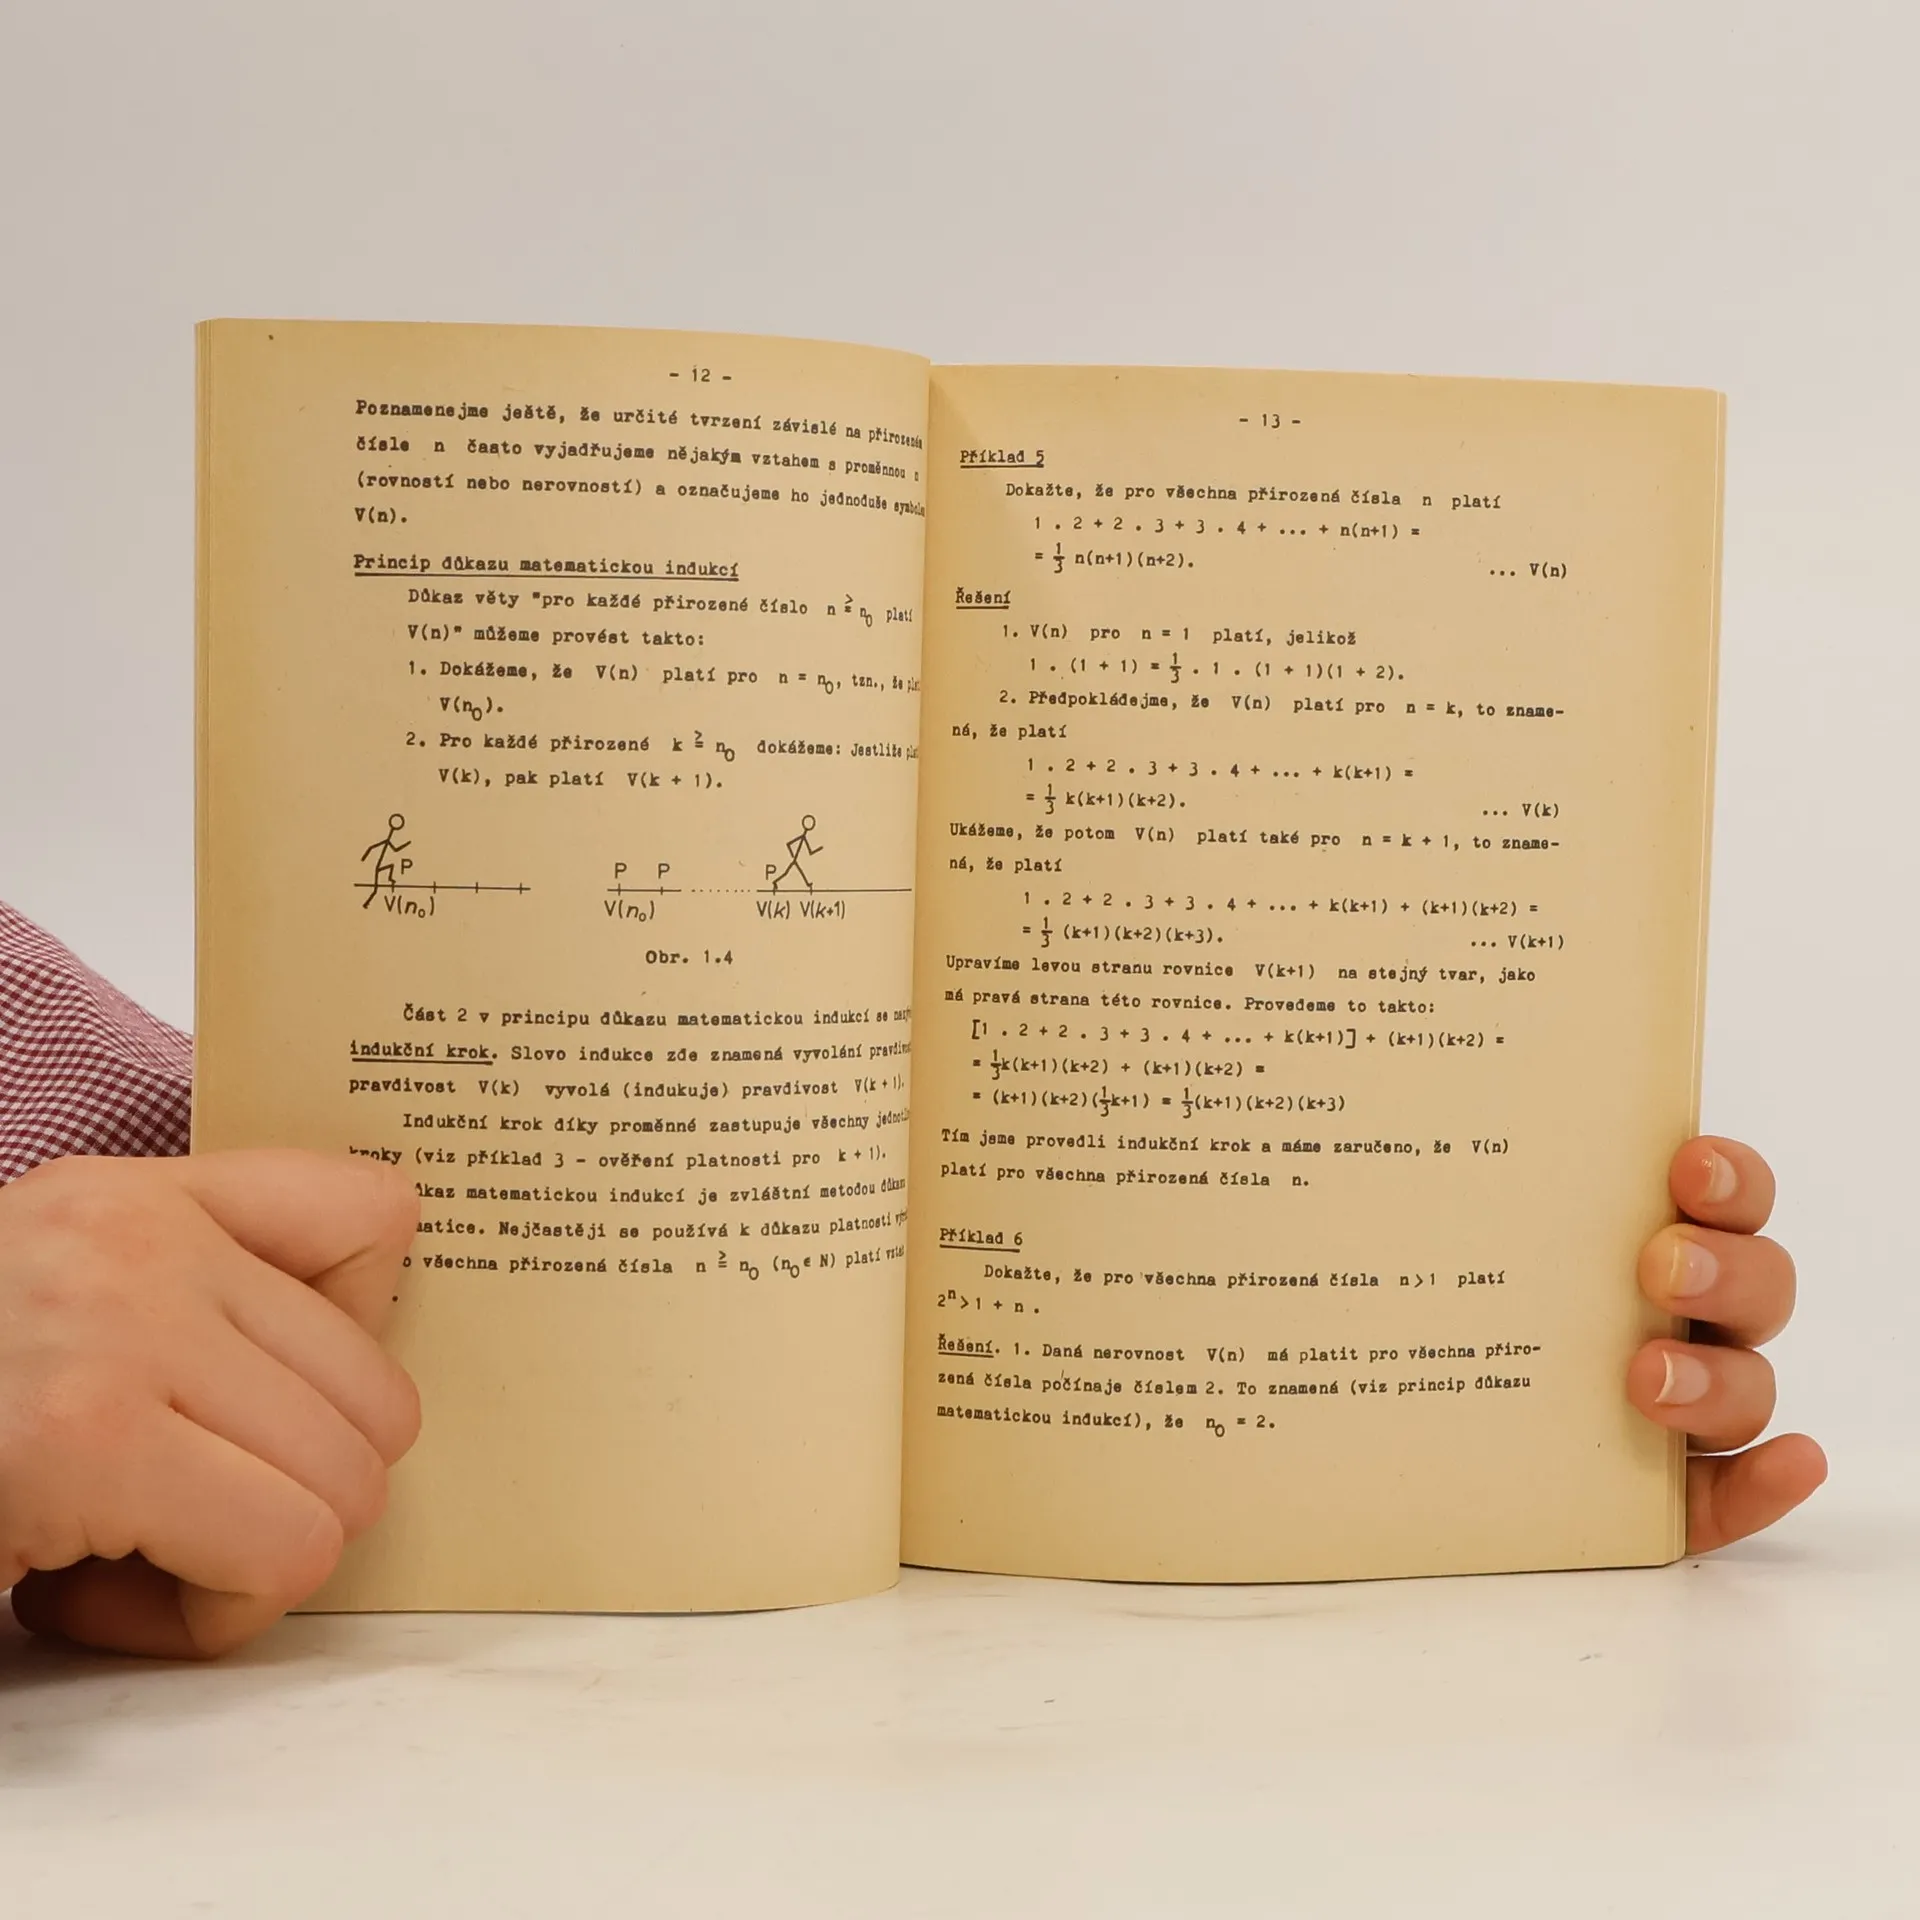 - 12 -
Poznamenejme ještě, že určité tvrzení závislé na
čísle n často vyjadřujeme nějakým vztahem s proměnnou n
(rovností nebo nerovností) a označujeme ho jednoduše
V(n).
Princip důkazu matematickou indukcí
Důkaz věty "pro každé přirozené číslo n ≧ n₀ platí
V(n)" můžeme provést takto:
1. Dokážeme, že V(n) platí pro n = n₀, tzn., že
V(n₀).
2. Pro každé přirozené k ≧ n₀ dokážeme: Jestliže
V(k), pak platí V(k + 1).
P P P P
V(n₀) V(n₀) V(k) V(k+1)
Obr. 1.4
Část 2 v principu důkazu matematickou indukcí se
indukční krok. Slovo indukce zde znamená vyvolání
pravdivost V(k) vyvolá (indukuje) pravdivost V(k + 1).
Indukční krok díky proměnné zastupuje všechny
kroky (viz příklad 3 - ověření platnosti pro k + 1).
matematickou indukcí je zvláštní metodou
Nejčastěji se používá k důkazu platnosti
všechna přirozená čísla n ≧ n₀ (n₀ ∈ N) platí
- 13 -
Příklad 5
Dokažte, že pro všechna přirozená čísla n platí
1 . 2 + 2 . 3 + 3 . 4 + ... + n(n+1) =
= 1/3 n(n+1)(n+2). ... V(n)
Řešení
1. V(n) pro n = 1 platí, jelikož
1 . (1 + 1) = 1/3 . 1 . (1 + 1)(1 + 2).
2. Předpokládejme, že V(n) platí pro n = k, to zname-
ná, že platí
1 . 2 + 2 . 3 + 3 . 4 + ... + k(k+1) =
= 1/3 k(k+1)(k+2). ... V(k)
Ukážeme, že potom V(n) platí také pro n = k + 1, to zname-
ná, že platí
1 . 2 + 2 . 3 + 3 . 4 + ... + k(k+1) + (k+1)(k+2) =
= 1/3 (k+1)(k+2)(k+3). ... V(k+1)
Upravíme levou stranu rovnice V(k+1) na stejný tvar, jako
má pravá strana této rovnice. Provedeme to takto:
[1 . 2 + 2 . 3 + 3 . 4 + ... + k(k+1)] + (k+1)(k+2) =
= 1/3k(k+1)(k+2) + (k+1)(k+2) =
= (k+1)(k+2)(1/3k+1) = 1/3(k+1)(k+2)(k+3)
Tím jsme provedli indukční krok a máme zaručeno, že V(n)
platí pro všechna přirozená čísla n.
Příklad 6
Dokažte, že pro všechna přirozená čísla n > 1 platí
2ⁿ > 1 + n .
Řešení. 1. Daná nerovnost V(n) má platit pro všechna přiro-
zená čísla počínaje číslem 2. To znamená (viz princip důkazu
matematickou indukcí), že n₀ = 2.